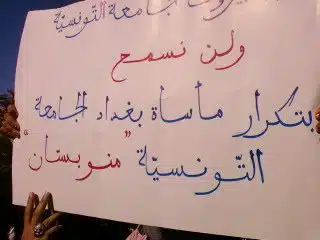 جامعة التونسيّة
ولن نسمح
بتكرار مأساة بغداد الجامعة
التّونسيّة "منوبستان"